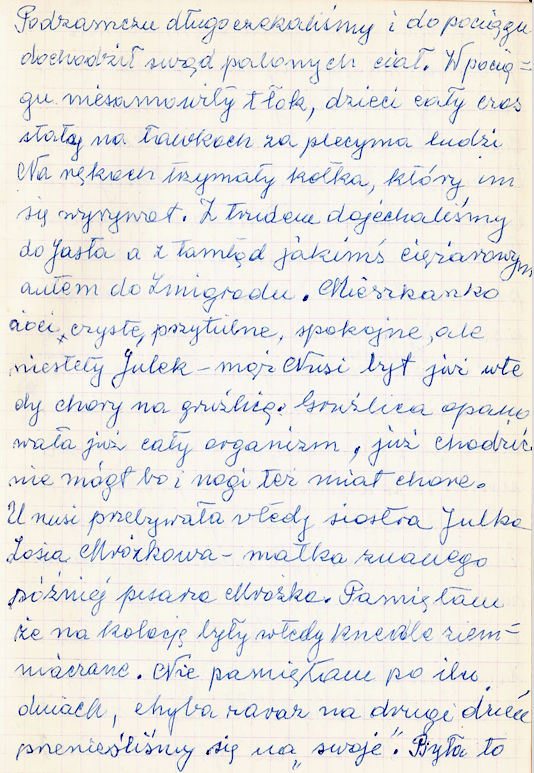 Podzamczu długo czekaliśmy i do pociągu
dochodził swąd palonych ciał. W pocią=
gu niesamowity tłok, dzieci cały czas
stały na ławkach za plecyma ludzi
Na rękach trzymały kotka, który im
się wyrywał. Z trudem dojechaliśmy
do Jasła a z tamtąd jakimś ciężarowym
autem do Żmigrodu. Mieszkanko
cioci, czyste, przytulne, spokojne, ale
niestety Julek – mąż Nusi był już wte
dy chory na gruźlicę. Gruźlica opano
wała już cały organizm, już chodzić
nie mógł bo i nogi też miał chore.
U nusi przebywała wtedy siostra Julka
Zosia Mrożkowa – matka znanego
później pisarza Mrożka. Pamiętam
że na kolację były wtedy knedle ziem=
niaczane. Nie pamiętam po ilu
dniach, chyba zaraz na drugi dzień
przenieśliśmy się na „swoje”. Była to